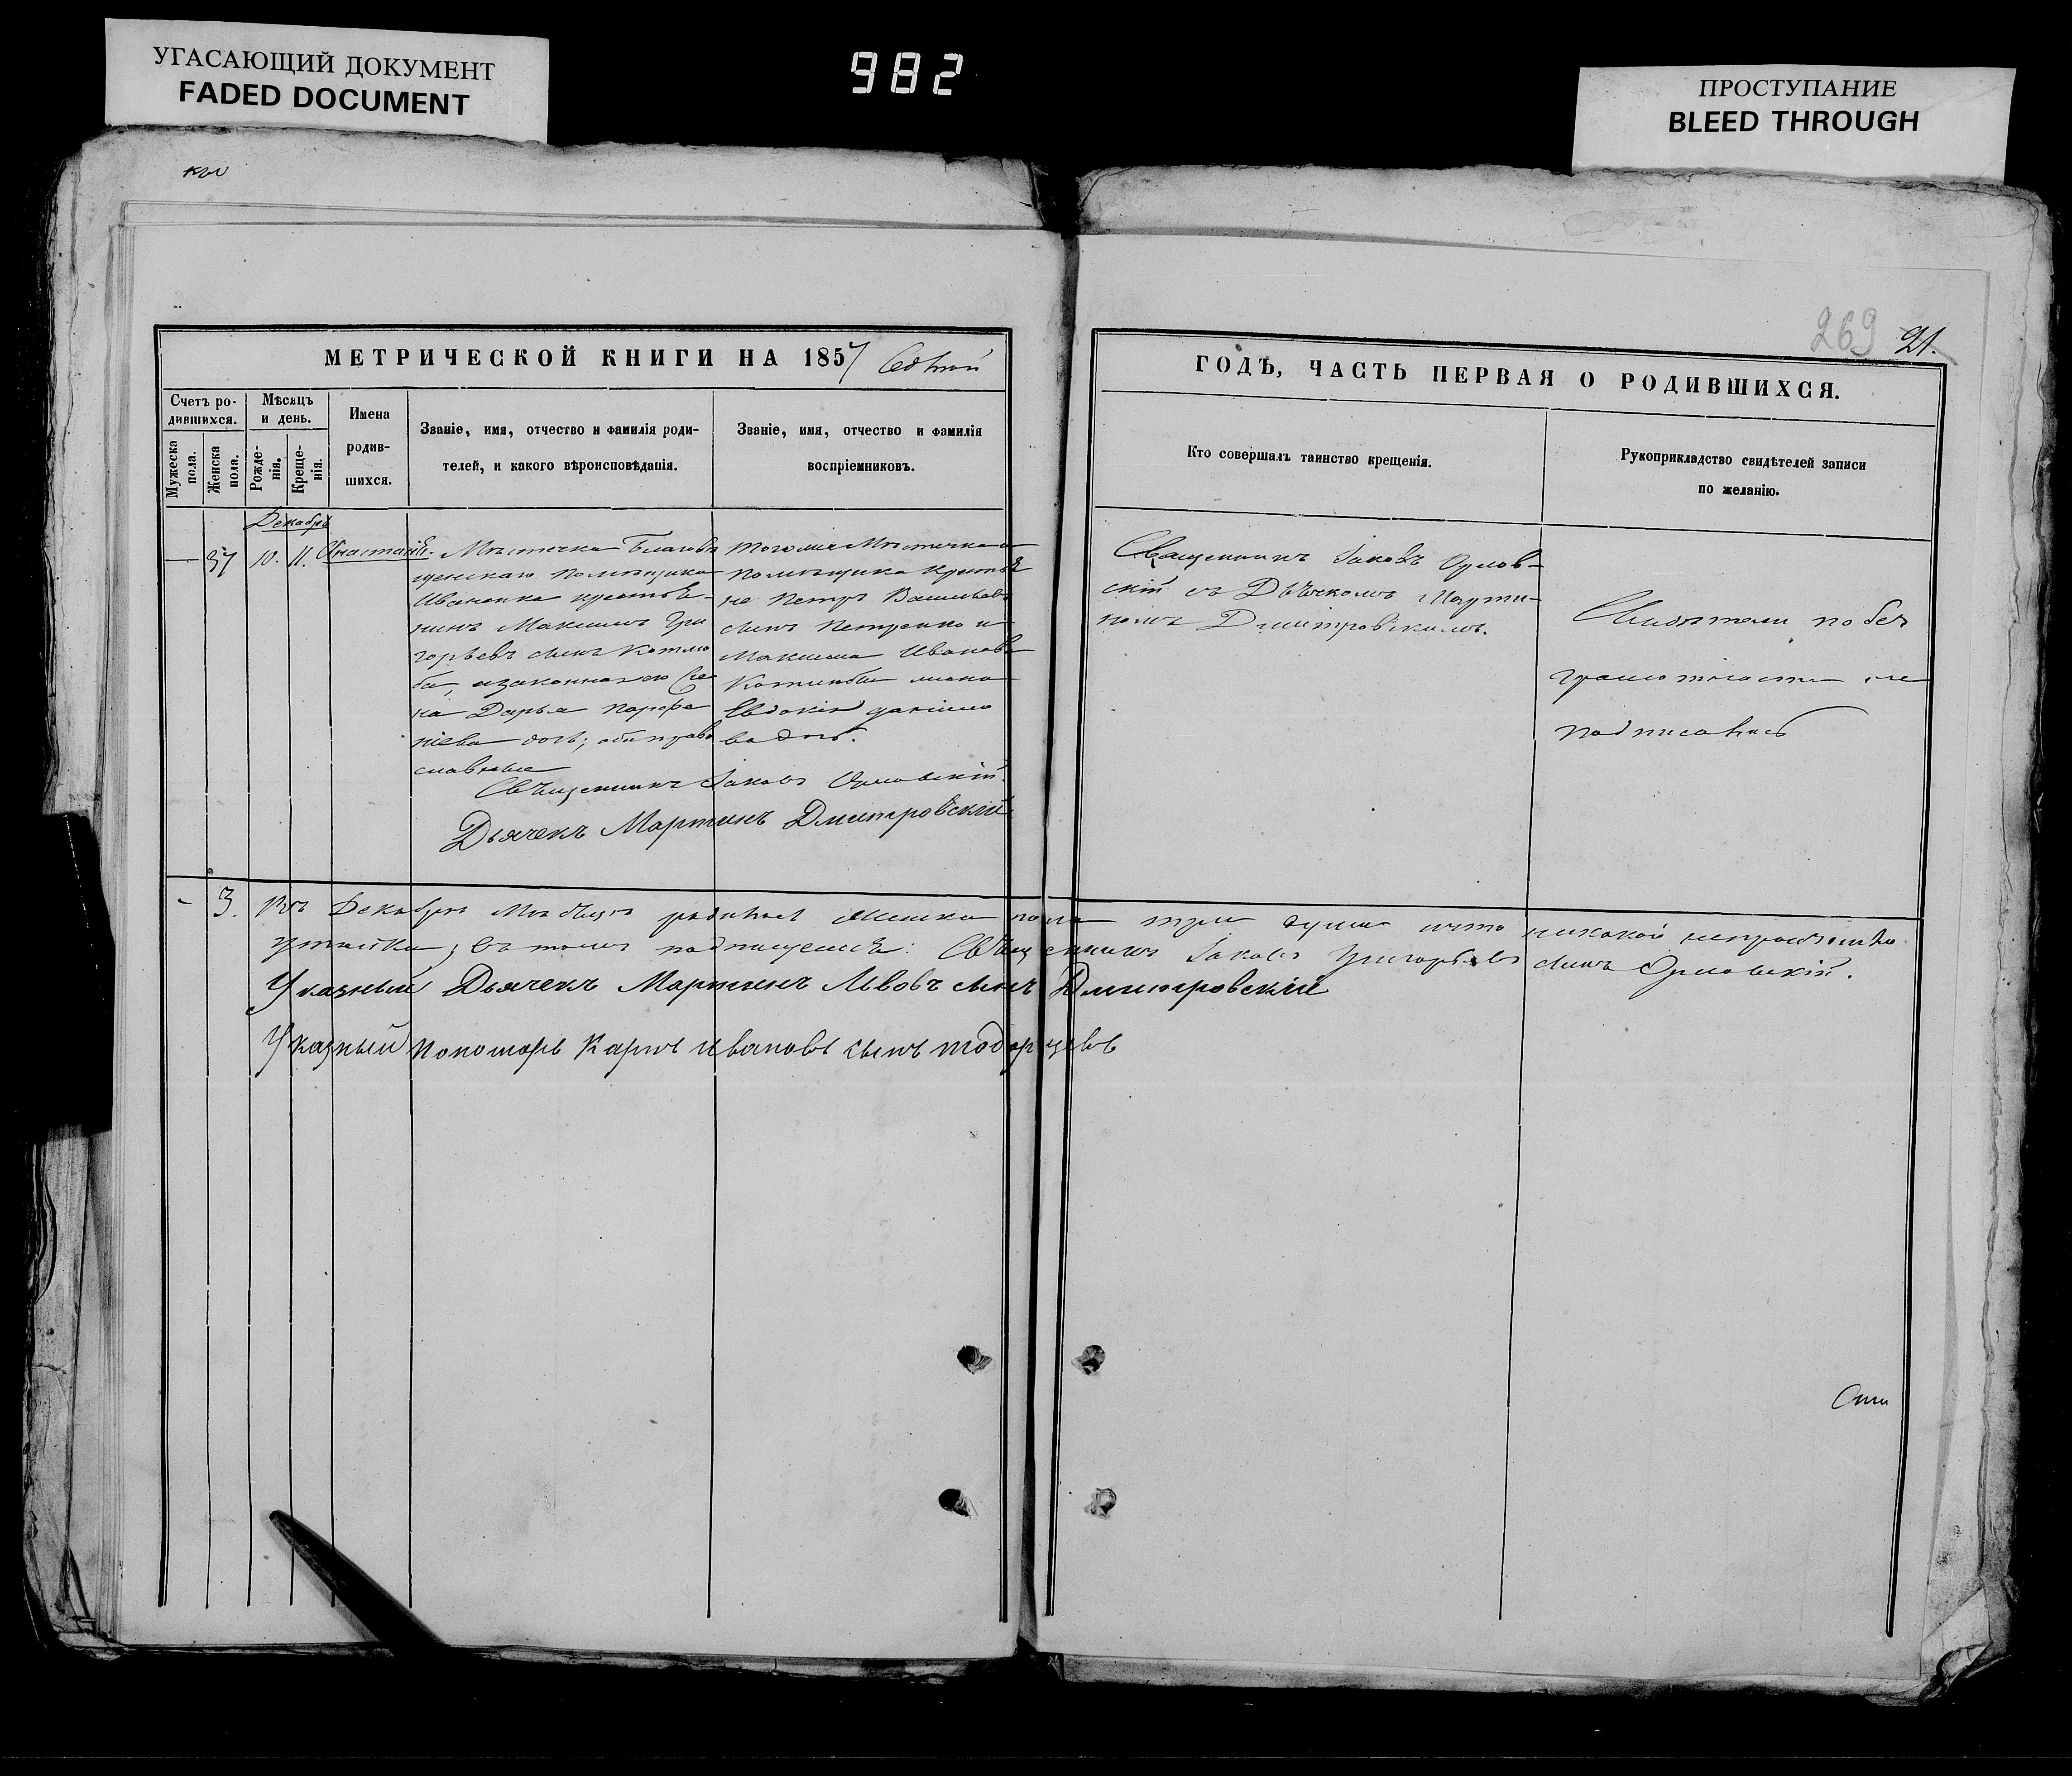 УГАСАЮЩИЙ ДОКУМЕНТ
FADED DOCUMENT
982
ПРОСТУПАНИЕ
BLEED THROUGH
269 21.
МЕТРИЧЕСКОЙ КНИГИ НА 1857
ГОДЪ, ЧАСТЬ ПЕРВАЯ О РОДИВШИХСЯ.
Счетъ ро-
дившихся.
Мужеска
пола.
Женска
пола.
Мѣсяцъ
и день.
Рожде-
нія.
Креще-
нія.
Имена
родив-
шихся.
Званіе, имя, отчество и фамилія роди-
телей, и какого вѣроисповѣданія.
Званіе, имя, отчество и фамилія
воспріемниковъ.
Кто совершалъ таинство крещенія.
Рукоприкладство свидѣтелей записи
по желанію.
Декабрь
37 10. 11. Анастасія.
Мѣстечка Благовѣ
щенскаго помѣщика
Иваненка крестья-
нинъ Максимъ Гри
горьевъ сынъ
ба, и законная его же
на Дарья Парфе
ніева дочь; оба право
славные
Тогоже Мѣстечка
помѣщика крестья
не Петръ Васильевъ
сынъ Петренко и
Максима Иванова
жена
Евдокія Даніило
ва дочь.
Священникъ Іаковъ Орловскій.
Дьячекъ Мартинъ Дмитровскій
Священникъ Іаковъ Орлов-
скій съ Дьячкомъ Марти-
номъ Дмитровскимъ.
Свидѣтели по без
грамотности не
подписались
- 3. Въ Декабрѣ Мѣсяцѣ родилось Женска пола три души что никакой непропи
утайки; въ томъ подписуемся: Священникъ Іаковъ Григорьевъ сынъ Орловскій.
Указный Дьячекъ Мартинъ Львовъ сынъ Дмитровскій
Указный Пономарь Карпъ Ивановъ сынъ